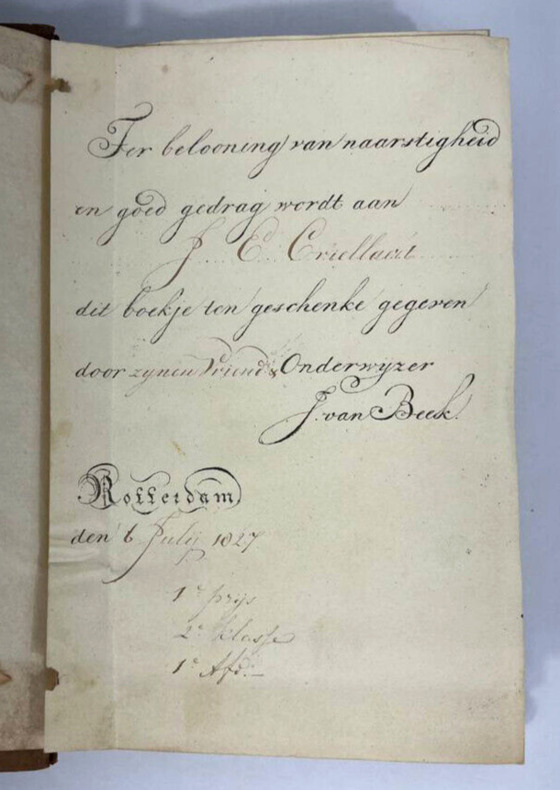 Ter belooning van naarstigheid
en goed gedrag wordt aan
J. Ed. Criellaert
dit boekje ten geschenke gegeven
door zynen Vriend & Onderwyzer
J. van Beek.
Rotterdam
den 6 Julij 1827
1e prijs
2e klasse
1e Afd.